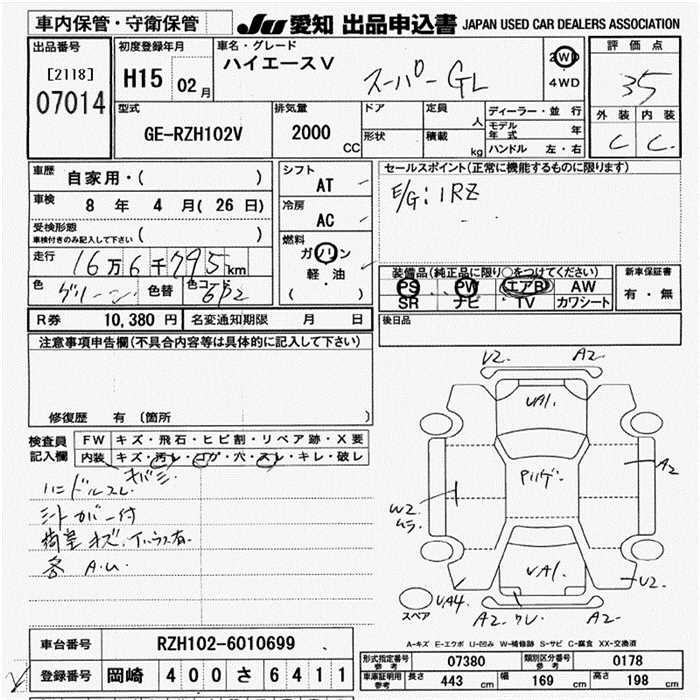 車内保管・守衛保管
JU 愛知 出品申込書 JAPAN USED CAR DEALERS ASSOCIATION
出品番号
[2118]
07014
初度登録年月
H15 02月
車名・グレード
ハイエースV スーパーGL
2WD
4WD
評価点
35
外装 内装
C C
型式
GE-RZH102V
排気量
2000 CC
ドア
形状
定員 人
積載 kg
ディーラー・並行
モデル年式 年
ハンドル 左・右
車歴
自家用・( )
車検
8 年 4 月( 26 日)
受検形態
車検付きのみ記入して下さい ( )
走行
16万6千795km
色 グリーン 色替 色コード 6P2
シフト
AT
冷房
AC
燃料
ガソリン
軽・油
( )
セールスポイント(正常に機能するものに限ります)
E/G: 1RZ
装備品(純正品に限り○をつけてください)
PS PW エアB AW
SR ナビ TV カワシート
新車保証書
有・無
後日品
R券 10,380 円 名変通知期限 月 日
注意事項申告欄(不具合内容等は具体的に記入して下さい)
修復歴 有 (箇所
検査員記入欄
FW キズ・飛石・ヒビ割・リペア跡・X要
内装 キズ・汚れ・コゲ・穴・スレ・キレ・破レ
ハンドルスレ
シートカバー付
荷室キズ
各 A.U.
V2. A2.
UA1.
A2
Pルゲー
W2.
ムラ
UA1.
U2.
スペア
UA4.
A2 ワレ. A2.
A-キズ E-エクボ U-凹み W-補修跡 S-サビ C-腐食 XX-交換済
車台番号 RZH102-6010699
登録番号 岡崎 400 さ 6411
形式指定番号 参考 07380 類別区分番号 参考 0178
車庫証明用 参考 長さ 443 cm 幅 169 cm 高さ 198 cm